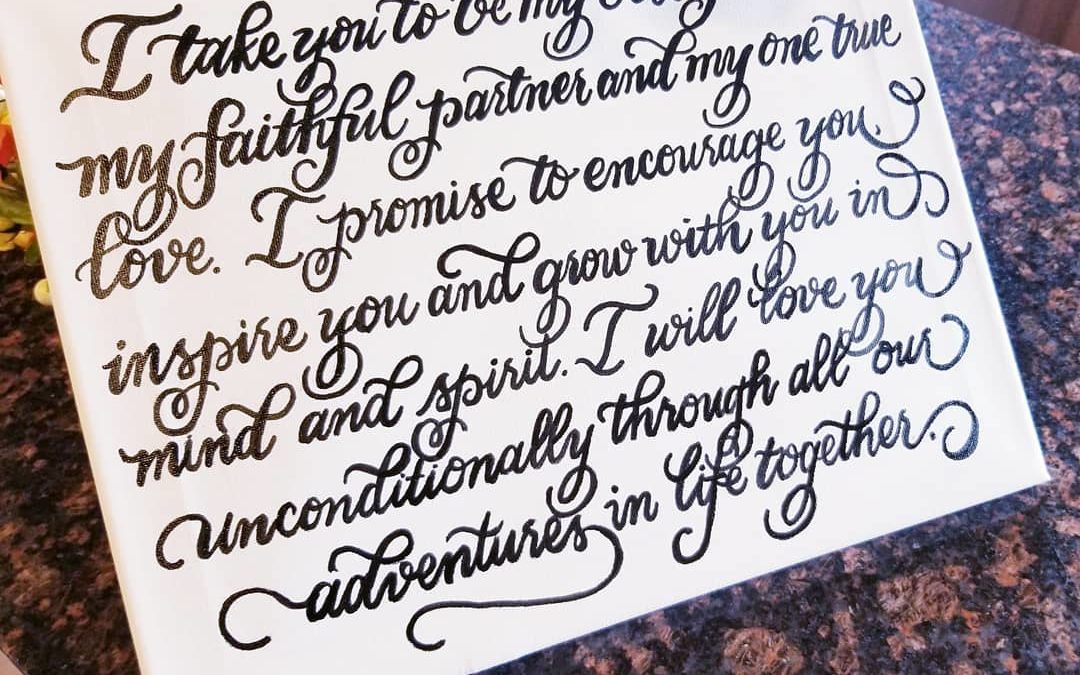 I take you to be my
my faithful partner and my one true
love. I promise to encourage you,
inspire you and grow with you in
mind and spirit. I will love you
unconditionally through all our
adventures in life together.